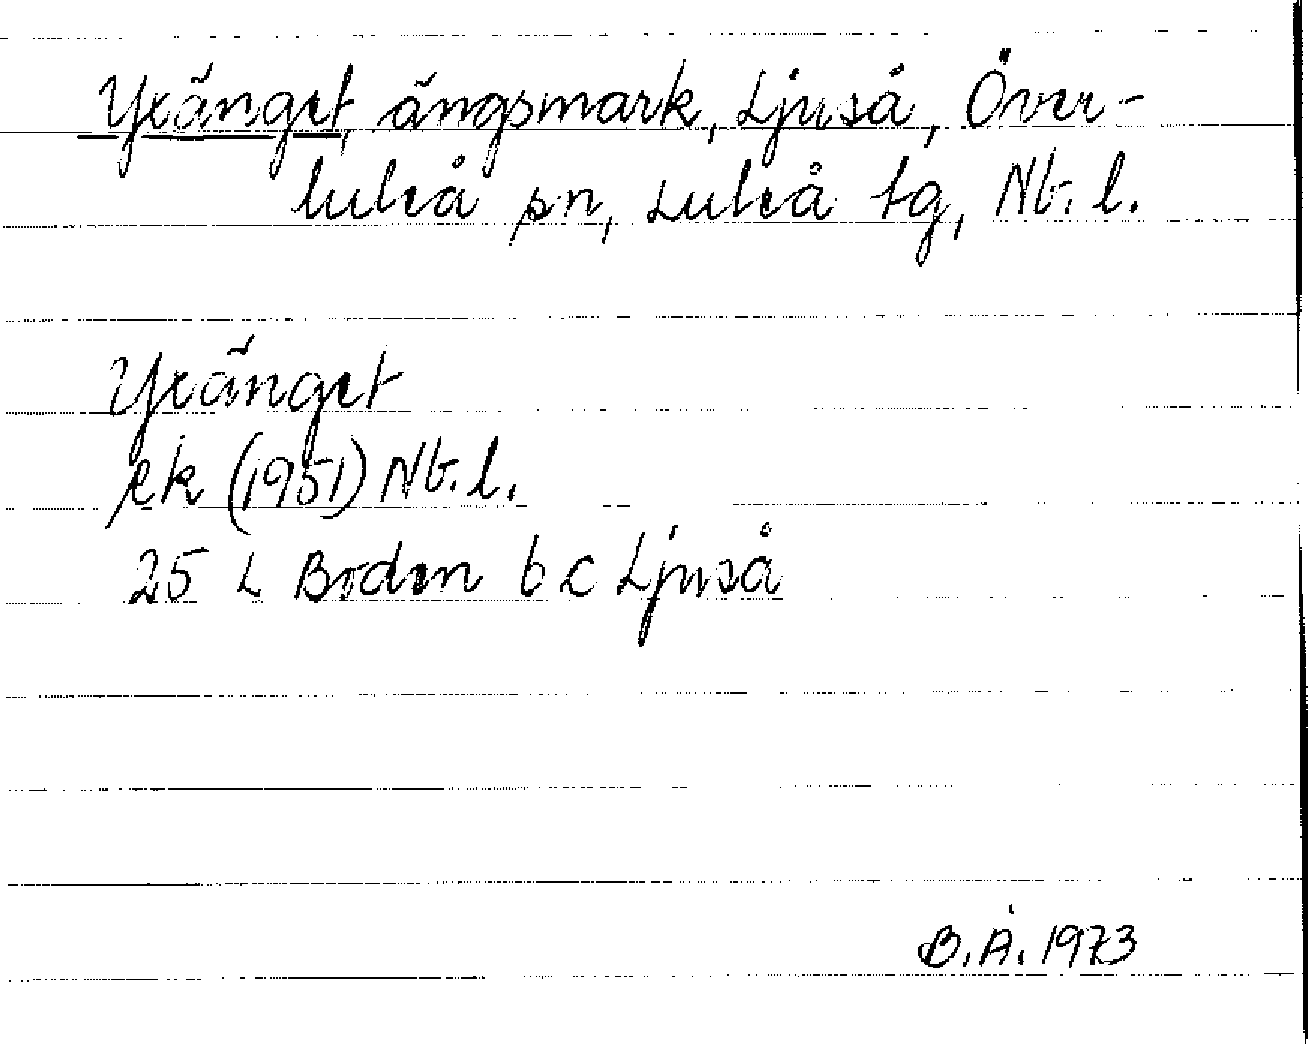 Yxänget, ängsmark, Ljuså, Över-
luleå sn, Luleå tg, Nb. l.
Yxänget
ek (1951) Nb. l.
25 L Boden b c Ljuså
B.Å. 1973